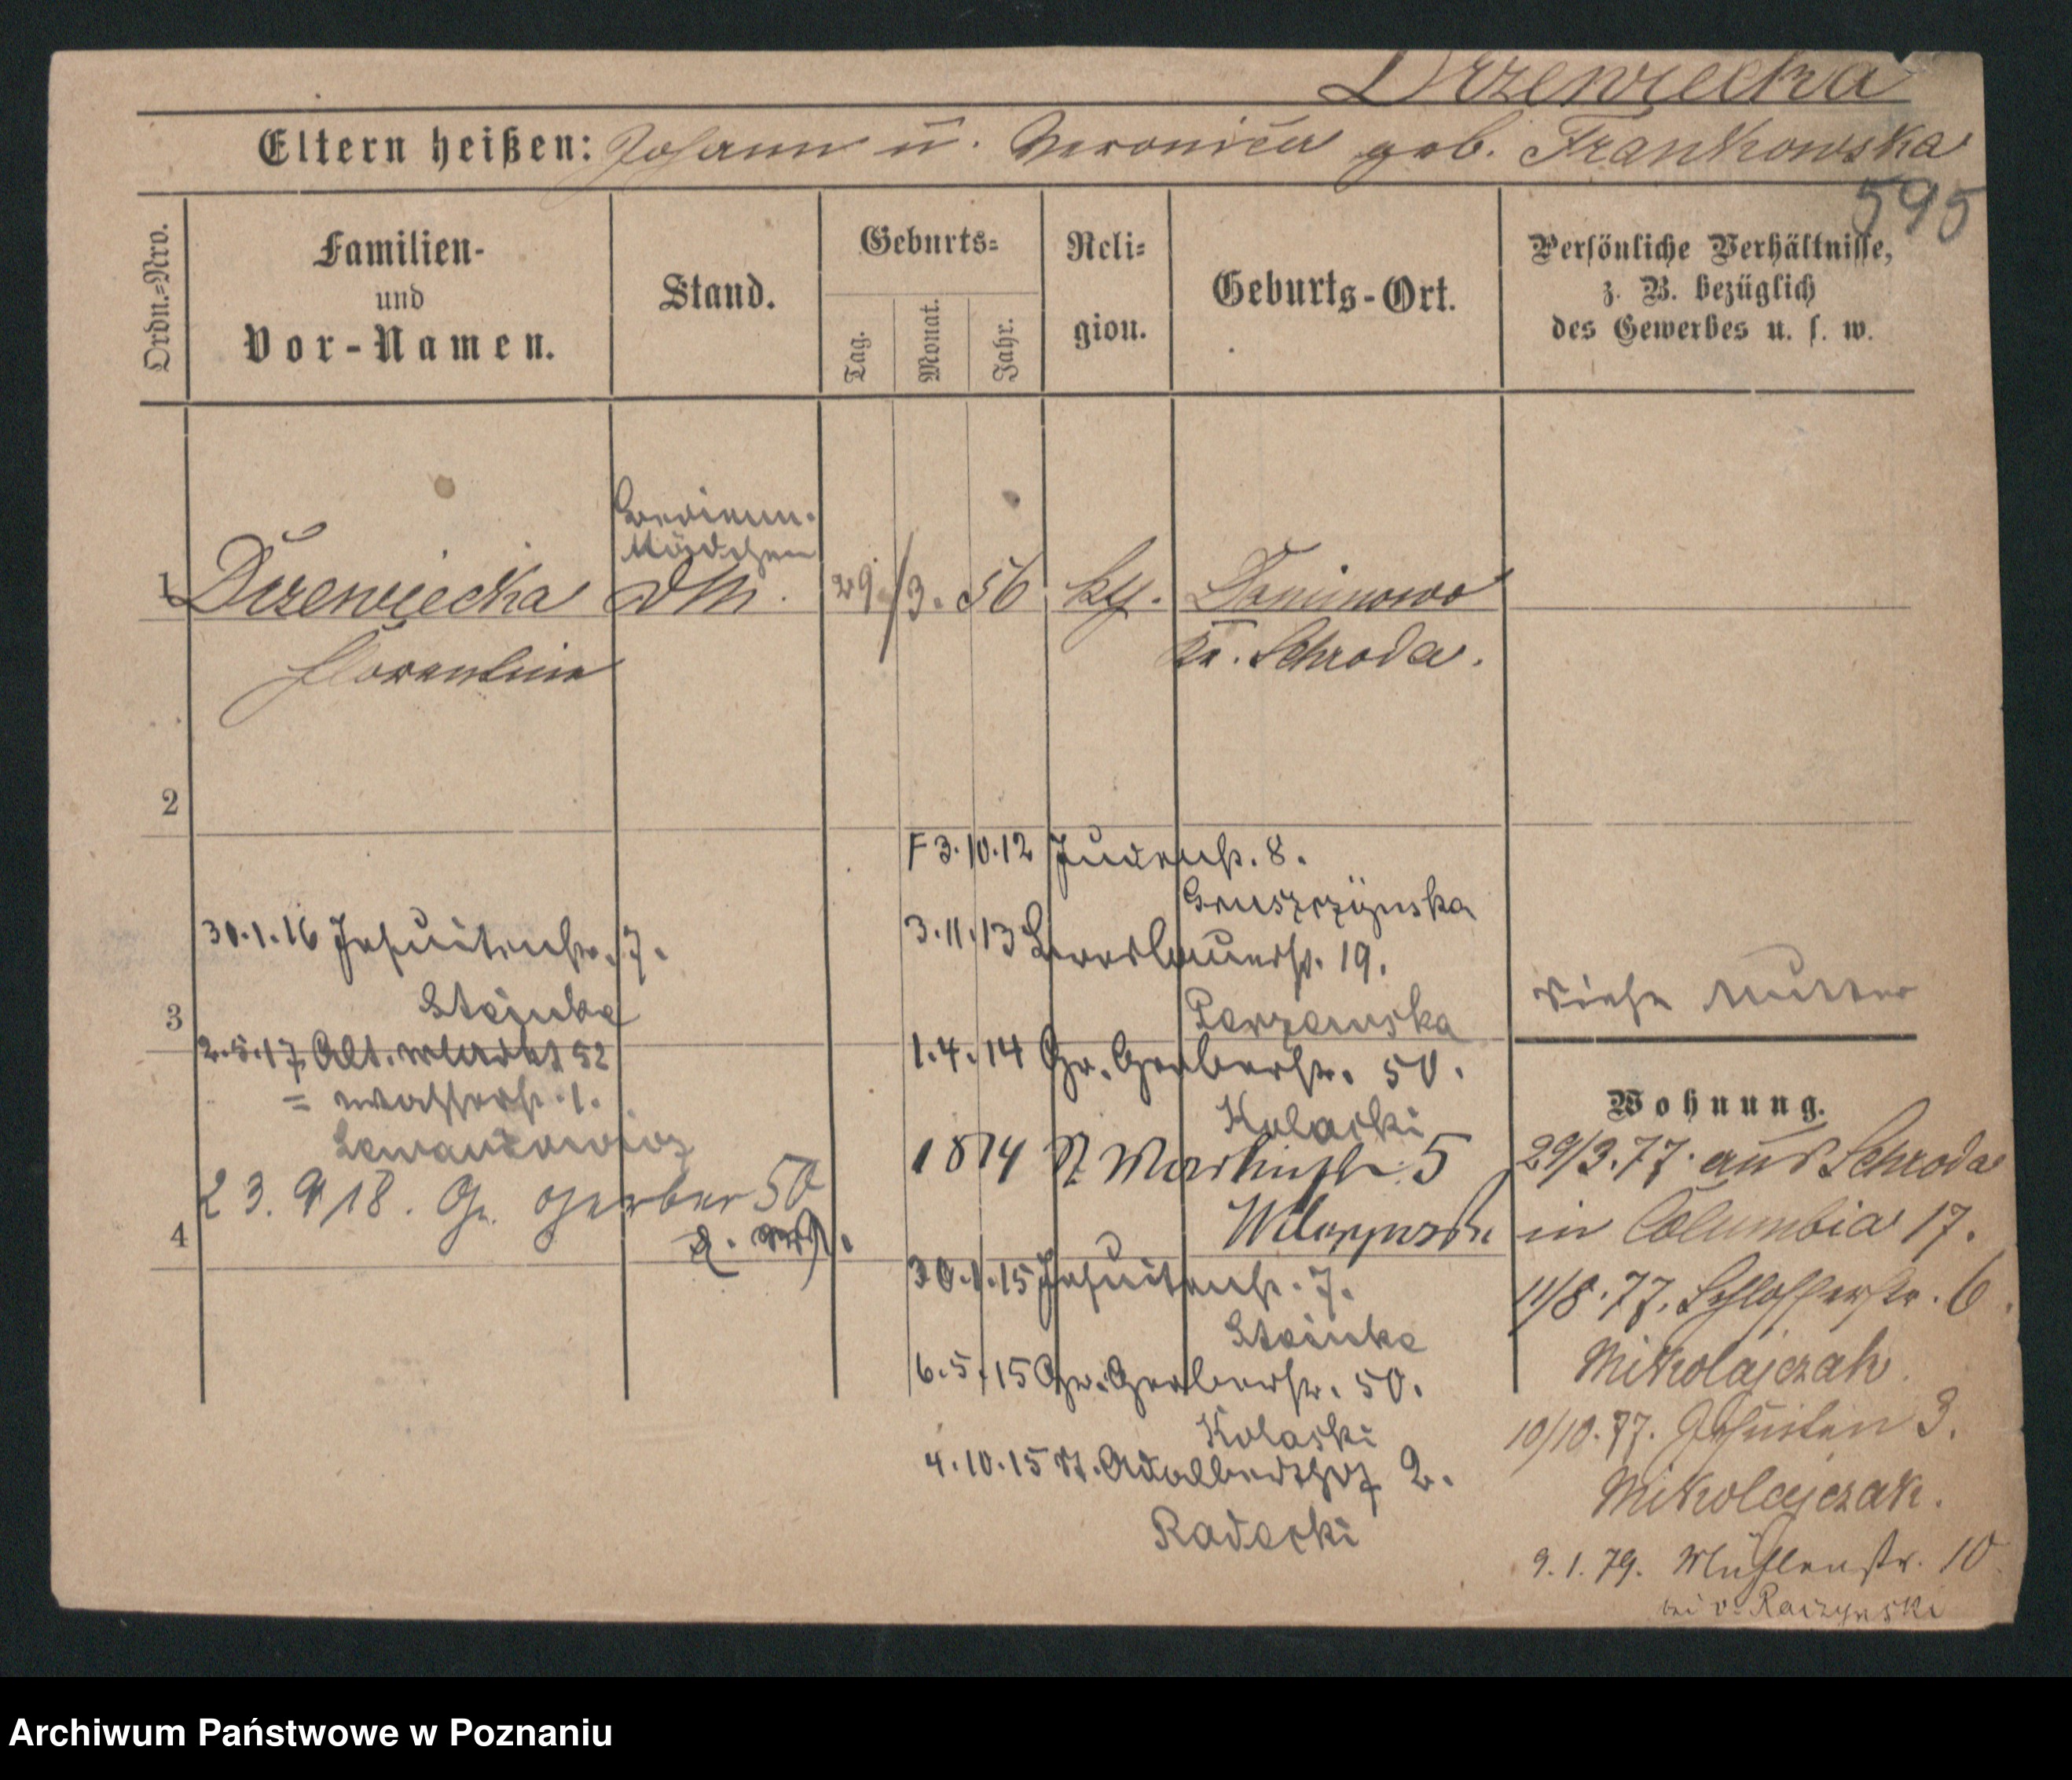 Drzewiecka
Eltern heißen: Johann u. Veronica geb. Frankowska
595
Ordn.=Nro.
Familien-
und
Vor-Namen.
Stand.
Geburts=
Tag.
Monat.
Jahr.
Reli=
gion.
Geburts-Ort.
Persönliche Verhältnisse,
z. B. bezüglich
des Gewerbes u. s. w.
Mädchen
1 Drzewiecka DM. 29./3. 56 kth. Dominowo
Florentine Kr. Schroda.
2
F 3.10.12 Judenstr. 8.
Gruszczynska
3.11.13 Breslauerstr. 19.
1.4.14 Gr. Gerberstr. 50.
Kolacki
1814 St Martinstr. 5
30.1.15 Jesuitenstr. 7.
Steinke
6.5.15 Gr. Gerberstr. 50.
Kolaski
4.10.15 St. Adalberthof 2.
Radecki
30.1.16 Jesuitenstr. 7.
Steinke
3
2.5.17 Alt. Markt 52
= Wasserstr. 1.
Lewandowicz
23.9 18. Gr. Gerber 50
4
Siehe Mutter
Wohnung.
29/3.77. aus Schroda
in Columbia 17.
11/8.77. Schlosserstr. 6.
Mikolajczak.
10/10.77. Jesuiten 3.
Mikolajczak.
9.1.79. Mühlenstr. 10
bei v. Raczynski
Archiwum Państwowe w Poznaniu